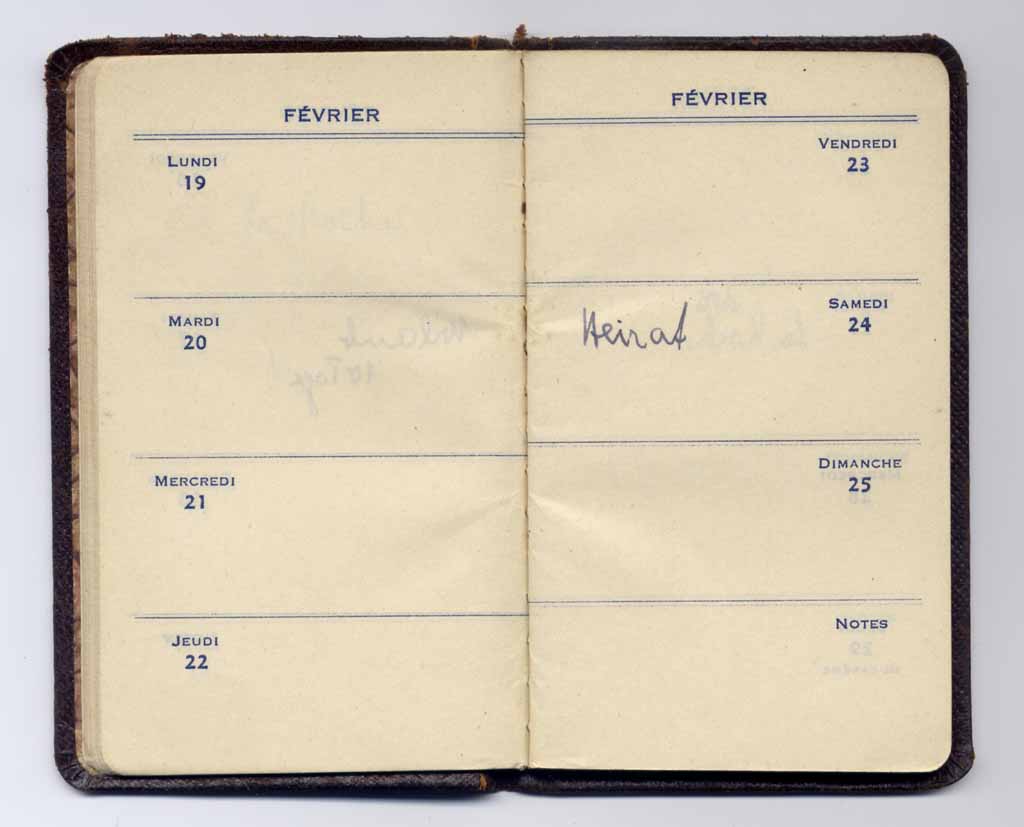 FÉVRIER
LUNDI
19
MARDI
20
MERCREDI
21
JEUDI
22
FÉVRIER
VENDREDI
23
SAMEDI
24
Heirat
DIMANCHE
25
NOTES